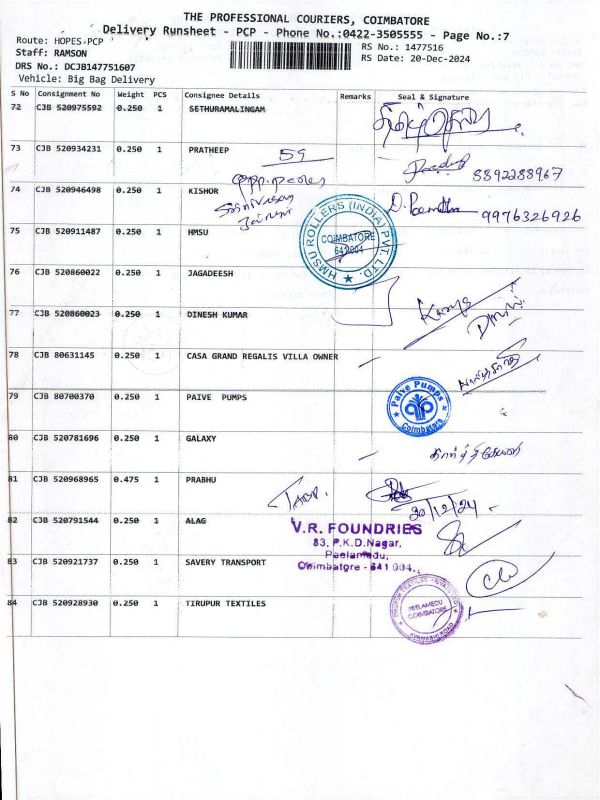 THE PROFESSIONAL COURIERS, COIMBATORE
Delivery Runsheet - PCP - Phone No.:0422-3505555 - Page No.:7
Route: HOPES PCP
RS No.: 1477516
Staff: RAMSON
RS Date: 20-Dec-2024
DRS No.: DCJB147751607
Vehicle: Big Bag Delivery
S No Consignment No Weight PCS Consignee Details Remarks Seal & Signature
72 CJB 520975592 0.250 1 SETHURAMALINGAM
73 CJB 520934231 0.250 1 PRATHEEP 59
8892288967
74 CJB 520946498 0.250 1 KISHOR
9976326926
75 CJB 520911487 0.250 1 HMSU
HMSU ROLLERS (INDIA) PVT. LTD.
COIMBATORE
641 004
76 CJB 520860022 0.250 1 JAGADEESH
77 CJB 520860023 0.250 1 DINESH KUMAR
78 CJB 80631145 0.250 1 CASA GRAND REGALIS VILLA OWNER
79 CJB 80700370 0.250 1 PAIVE PUMPS
Paive Pumps
Coimbatore
80 CJB 520781696 0.250 1 GALAXY
81 CJB 520968965 0.475 1 PRABHU
20/12/24
82 CJB 520791544 0.250 1 ALAG
V.R. FOUNDRIES
83, P.K.D.Nagar,
Peelamedu,
Coimbatore - 641 004.
83 CJB 520921737 0.250 1 SAVERY TRANSPORT
84 CJB 520928930 0.250 1 TIRUPUR TEXTILES
PEELAMEDU
COIMBATORE